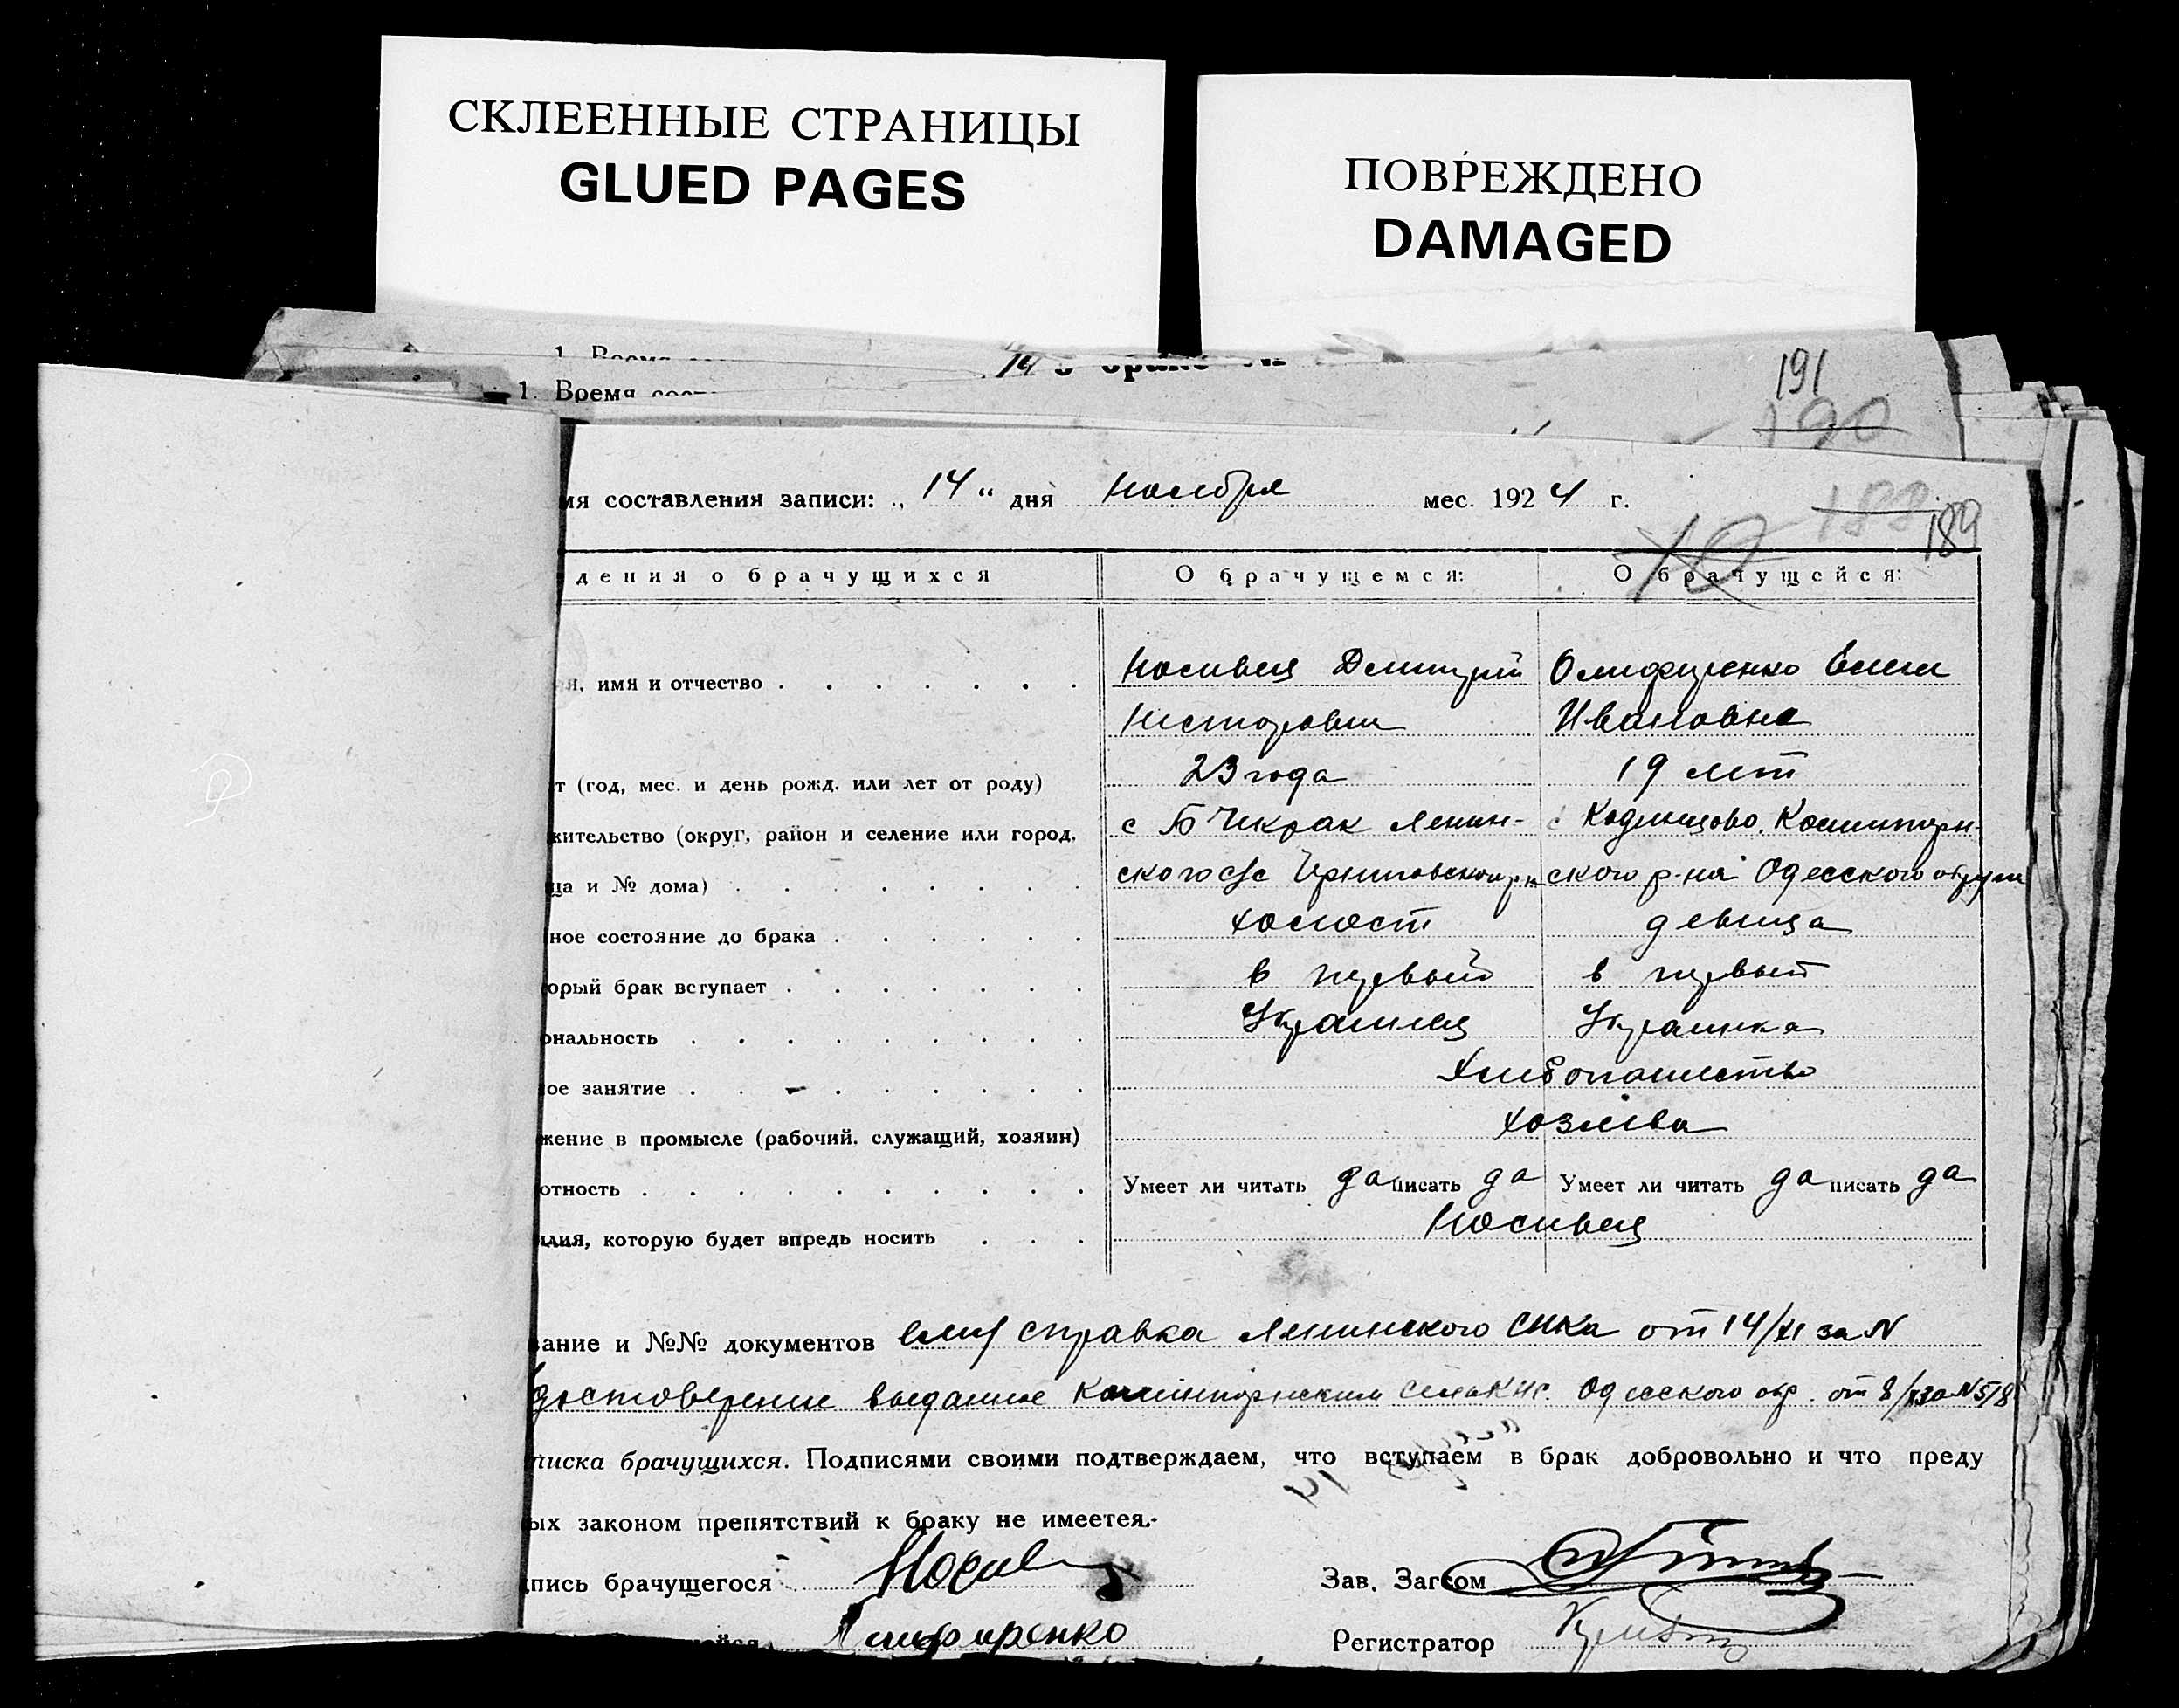 СКЛЕЕННЫЕ СТРАНИЦЫ
GLUED PAGES
ПОВРЕЖДЕНО
DAMAGED
1. Время
14
1. Время
191
190
мя составления записи: „ 14 “ дня ноября мес. 1924 г.
188
189
дения о брачущихся О брачущемся: О брачущейся:
я, имя и отчество Носивец Дмитрий Елена
Несторович Ивановна
т (год, мес. и день рожд. или лет от роду) 23 года 19 лет
жительство (округ, район и селение или город, с Б Чекрак Ленин- с Коминтерн-
ца и № дома) ского с/с Черниговского р-н ского р-на Одесского округа
ное состояние до брака холост девица
орый брак вступает в первый в первый
ональность Украинец Украинка
ое занятие Хлебопашество
жение в промысле (рабочий, служащий, хозяин) хозяева
отность Умеет ли читать да писать да Умеет ли читать да писать да
илия, которую будет впредь носить Носивец
вание и №№ документов справка Ленинского от 14/XI за N
достоверение выданное Коминтернским Одесского окр. от 8/ за N 518
писка брачущихся. Подписями своими подтверждаем, что вступаем в брак добровольно и что преду
ых законом препятствий к браку не имеется.
пись брачущегося Носив Зав. Загсом
Регистратор